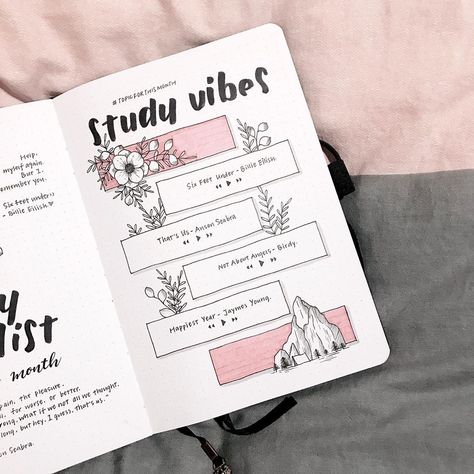 Help.
myself again.
But I
remember you.
Six Feet under
- Billie Eilish.
y
list
month
pain, the pleasure.
for worse, or better.
wrong, what if we not all we thought.
long, but hey, I guess, that's us."
Anson Seabra.
#TOPICFORTHISMONTH
study vibes
Six Feet Under - Billie Eilish.
That's Us - Anson Seabra
Not About Angels - Birdy.
Happiest Year - Jaymes Young.